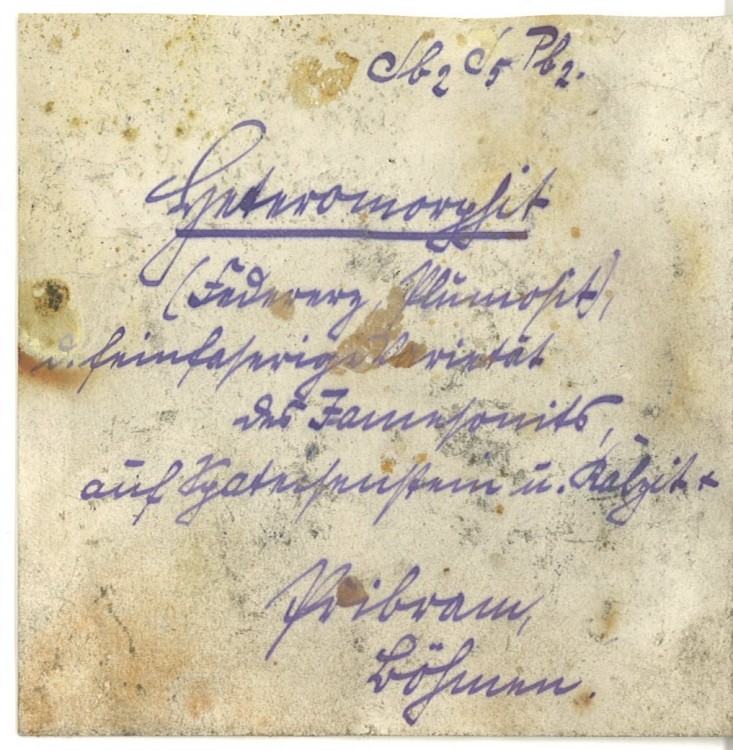 Sb2 S5 Pb2.
Heteromorphit
(Federerz, Plumosit),
d. feinfaserige Varietät
des Jamesonits,
auf Spateisenstein u. Kalzit
Pribram,
Böhmen.